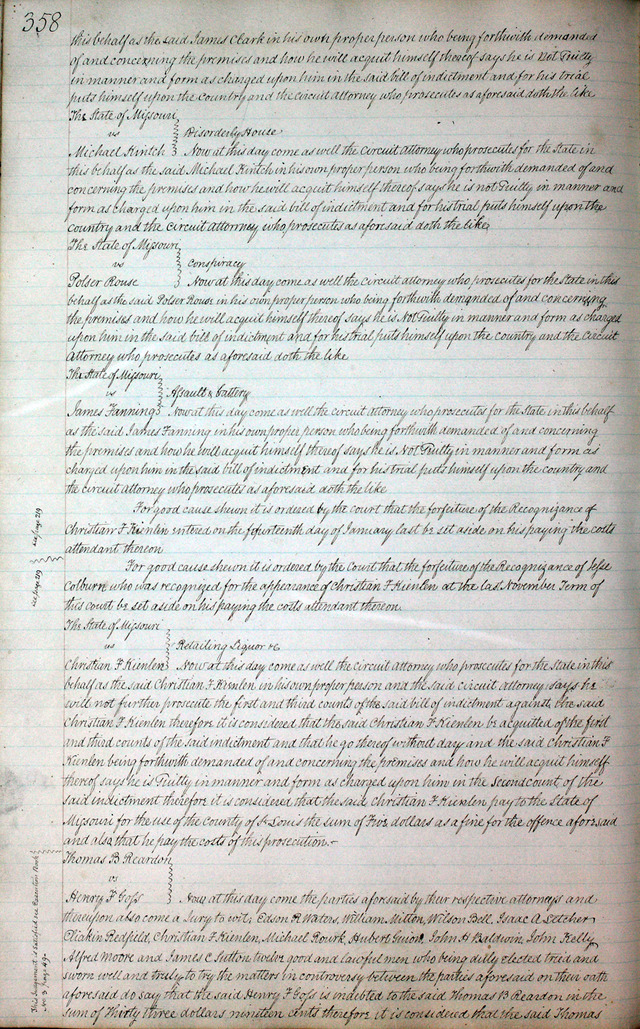 358
this behalf as the said James Clark in his own proper person who being forthwith demanded
of and concerning the premises and how he will acquit himself thereof says he is Not Guilty
in manner and form as charged upon him in the said bill of indictment and for his trial
puts himself upon the country and the circuit attorney who prosecutes as aforesaid doth the like
The State of Missouri
vs
Disorderly House
Michael Kintch Now at this day come as well the Circuit Attorney who prosecutes for the State in
this behalf as the said Michael Kintch in his own proper person who being forthwith demanded of and
concerning the premises and how he will acquit himself thereof says he is not Guilty in manner and
form as charged upon him in the said bill of indictment and for his trial puts himself upon the
country and the Circuit Attorney who prosecutes as aforesaid doth the like
The State of Missouri
vs
Conspiracy
Polser Rouse Now at this day come as well the circuit attorney who prosecutes for the State in this
behalf as the said Polser Rouse in his own proper person who being forthwith demanded of and concerning
the premises and how he will acquit himself thereof says he is Not Guilty in manner and form as charged
upon him in the said bill of indictment and for his trial puts himself upon the country and the Circuit
Attorney who prosecutes as aforesaid doth the like
The State of Missouri
vs
Assault & battery
James Fanning Now at this day come as well the circuit attorney who prosecutes for the State in this behalf
as the said James Fanning in his own proper person who being forthwith demanded of and concerning
the premises and how he will acquit himself thereof says he is Not Guilty in manner and form as
charged upon him in the said bill of indictment and for his trial puts himself upon the country and
the circuit attorney who prosecutes as aforesaid doth the like
For good cause shewn it is ordered by the court that the forfeiture of the Recognizance of
Christian F Kienlen entered on the fourteenth day of January last be set aside on his paying the costs
attendant thereon
see page 219
For good cause shewn it is ordered by the Court that the forfeiture of the Recognizance of Jesse
Colburn who was recognized for the appearance of Christian F Kienlen at the last November Term of
this court be set aside on his paying the costs attendant thereon.
see page 219
The State of Missouri
vs
Retailing Liquor &c
Christian F Kienlen Now at this day come as well the circuit attorney who prosecutes for the State in this
behalf as the said Christian F Kienlen in his own proper person and the said circuit attorney says he
will not further prosecute the first and third counts of the said bill of indictment against the said
Christian F Kienlen therefore it is considered that the said Christian F Kienlen be acquitted of the first
and third counts of the said indictment and that he go thereof without day and the said Christian F
Kienlen being forthwith demanded of and concerning the premises and how he will acquit himself
thereof says he is Guilty in manner and form as charged upon him in the Second count of the
said indictment therefore it is considered that the said Christian F Kienlen pay to the State of
Missouri for the use of the county of St Louis the sum of Five dollars as a fine for the offence aforesaid
and also that he pay the costs of this prosecution.
Thomas B Reardon
vs
Henry F Goss Now at this day come the parties aforesaid by their respective attorneys and
thereupon also come a Jury to wit; Edson R Waters, William Mitton, Wilson Bell, Isaac A Letcher
Eliakin Redfield, Christian F Kienlen, Michael Rourk, Hubert Guion, John H Baldwin, John Kelly
Alfred Moore and James C Sutton twelve good and lawful men who being duly elected tried and
sworn well and truly to try the matters in controversy between the parties aforesaid on their oath
aforesaid do say that the said Henry F Goss is indebted to the said Thomas B Reardon in the
sum of Thirty three dollars nineteen cents therefore it is considered that the said Thomas
This Judgement is Satisfied see Execution Book
No 3 page 49